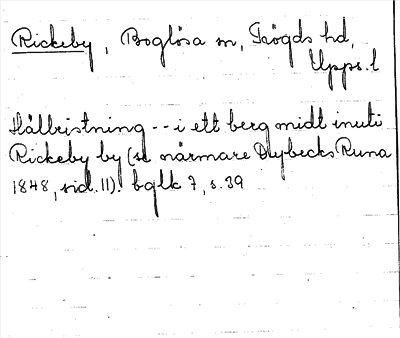 Rickeby, Boglösa sn, Trögds hd,
Upps. l
Hällristning -- i ett berg midt inuti
Rickeby by (se närmare Dybecks Runa
1848, sid. 11). bglk 7, s. 39